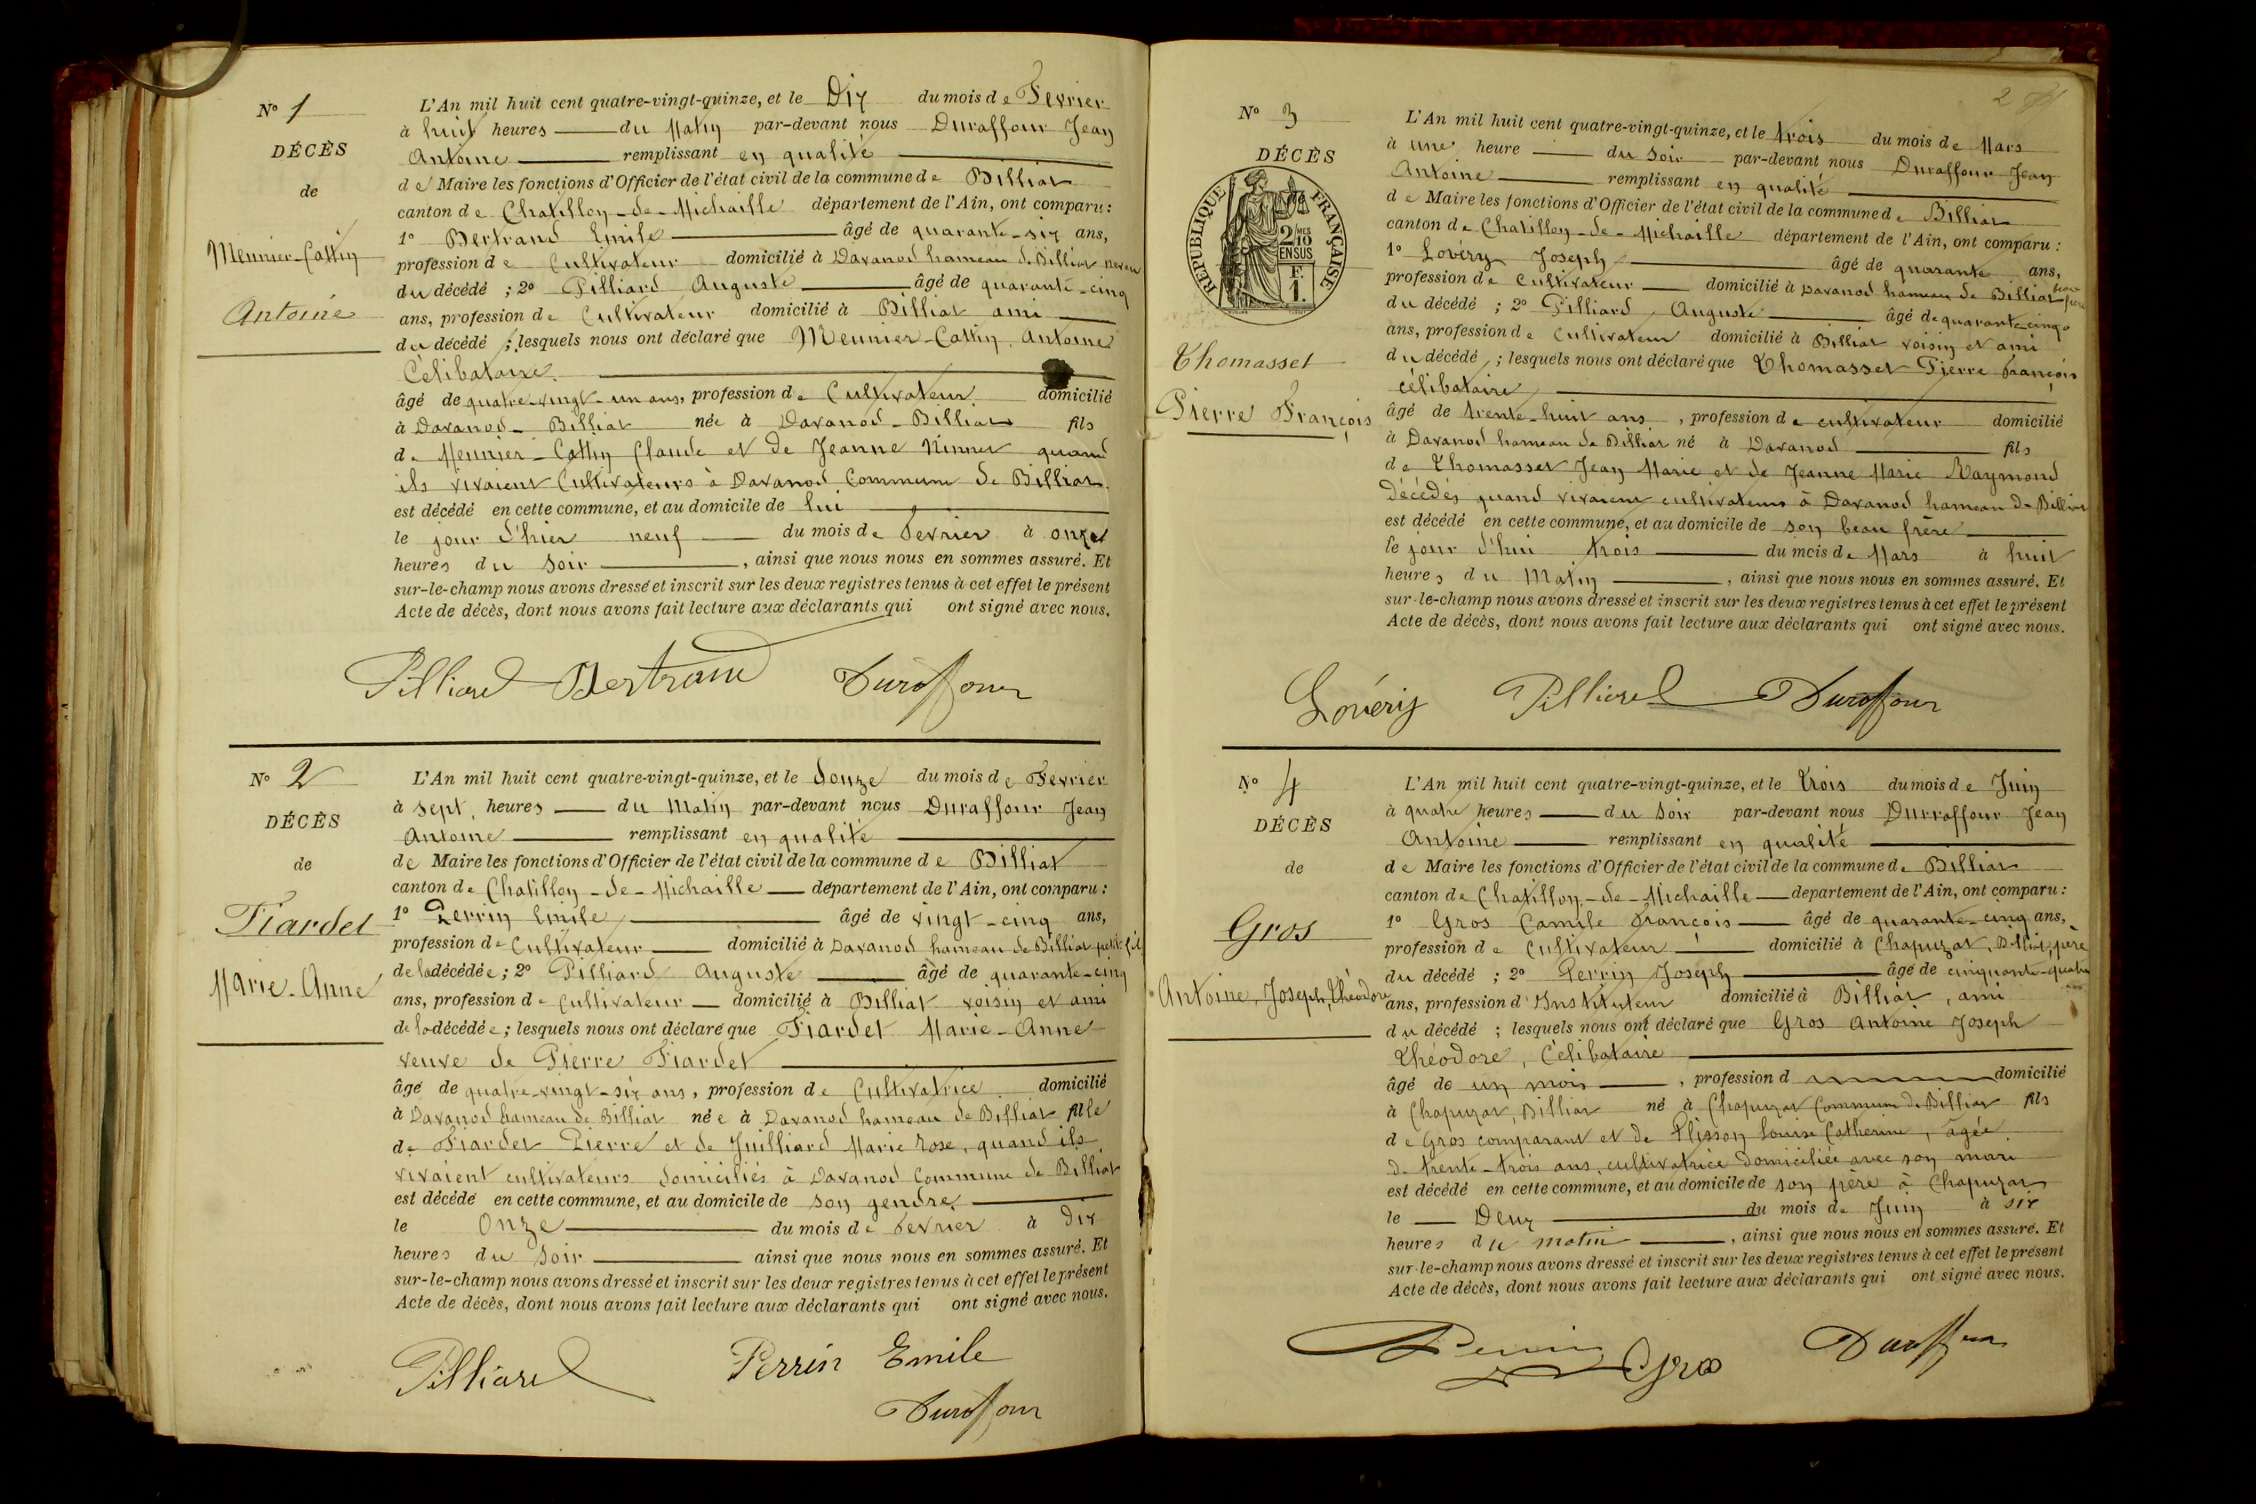 N° 1
DÉCÈS
de
Meunier-Cattin
Antoine
L'An mil huit cent quatre-vingt-quinze, et le Dix du mois de Fevrier
à huit heures du Matin par-devant nous Duraffour Jean
Antoine remplissant en qualité
de Maire les fonctions d'Officier de l'état civil de la commune de Billiat
canton de Chatillon-de-Michaille département de l'Ain, ont comparu:
1° Bertrand Emile âgé de quarante-six ans,
profession de Cultivateur domicilié à Davanod hameau de Billiat neveu
du décédé ; 2° Pilliard Auguste âgé de quarante-cinq
ans, profession de Cultivateur domicilié à Billiat ami
du décédé ; lesquels nous ont déclaré que Meunier-Cattin Antoine
Célibataire.
âgé de quatre-vingt-un ans, profession de Cultivateur domicilié
à Davanod-Billiat née à Davanod-Billiat fils
de Meunier-Cattin Claude et de Jeanne Ninnet quand
ils vivaient Cultivateurs à Davanod Commune de Billiat.
est décédé en cette commune, et au domicile de lui
le jour d'hier neuf du mois de fevrier à onze
heures du Soir, ainsi que nous nous en sommes assuré. Et
sur-le-champ nous avons dressé et inscrit sur les deux registres tenus à cet effet le présent
Acte de décès, dont nous avons fait lecture aux déclarants qui ont signé avec nous.
Pilliard Bertrand Duraffour
N° 2
DÉCÈS
de
Fiardet
Marie-Anne
L'An mil huit cent quatre-vingt-quinze, et le douze du mois de Fevrier
à sept heures du Matin par-devant nous Duraffour Jean
Antoine remplissant en qualité
de Maire les fonctions d'Officier de l'état civil de la commune de Billiat
canton de Chatillon-de-Michaille département de l'Ain, ont comparu:
1° Perrin Emile, âgé de vingt-cinq ans,
profession de Cultivateur domicilié à Davanod hameau de Billiat petit-fils
de la décédée ; 2° Pilliard Auguste âgé de quarante-cinq
ans, profession de Cultivateur domicilié à Billiat voisin et ami
de la décédée ; lesquels nous ont déclaré que Fiardet Marie-Anne
veuve de Pierre Fiardet
âgé de quatre-vingt-six ans, profession de Cultivatrice domicilié
à Davanod hameau de Billiat née à Davanod hameau de Billiat fille
de Fiardet Pierre et de Juilliard Marie Rose, quand ils
vivaient cultivateurs domiciliés à Davanod Commune de Billiat
est décédé en cette commune, et au domicile de son gendre
le Onze du mois de fevrier à Dix
heures du Soir ainsi que nous nous en sommes assuré. Et
sur-le-champ nous avons dressé et inscrit sur les deux registres tenus à cet effet le présent
Acte de décès, dont nous avons fait lecture aux déclarants qui ont signé avec nous.
Pilliard Perrin Emile
Duraffour
2
N° 3
DÉCÈS
RÉPUBLIQUE FRANÇAISE
2 MES 10
EN SUS
F.
1.
Thomasset
Pierre François
L'An mil huit cent quatre-vingt-quinze, et le trois du mois de Mars
à une heure du Soir par-devant nous Duraffour Jean
Antoine remplissant en qualité
de Maire les fonctions d'Officier de l'état civil de la commune de Billiat
canton de Chatillon-de-Michaille département de l'Ain, ont comparu :
1° Lovéry Joseph âgé de quarante ans,
profession de Cultivateur domicilié à Davanod hameau de Billiat beau frère
du décédé ; 2° Pilliard Auguste âgé de quarante-cinq
ans, profession de Cultivateur domicilié à Billiat voisin et ami
du décédé ; lesquels nous ont déclaré que Thomasset Pierre françois
célibataire
âgé de trente-huit ans, profession de cultivateur domicilié
à Davanod hameau de Billiat né à Davanod fils
de Thomasset Jean Marie et de Jeanne Marie Raymond
Décédés quand vivaient cultivateurs à Davanod hameau de Billiat
est décédé en cette commune, et au domicile de son beau frère
le jour d'hui trois du mois de Mars à huit
heures du Matin, ainsi que nous nous en sommes assuré. Et
sur-le-champ nous avons dressé et inscrit sur les deux registres tenus à cet effet le présent
Acte de décès, dont nous avons fait lecture aux déclarants qui ont signé avec nous.
Lovéry Pilliard Duraffour
N° 4
DÉCÈS
de
Gros
Antoine, Joseph, Théodore
L'An mil huit cent quatre-vingt-quinze, et le Trois du mois de Juin
à quatre heures du Soir par-devant nous Durraffour Jean
Antoine remplissant en qualité
de Maire les fonctions d'Officier de l'état civil de la commune de Billiat
canton de Chatillon-de-Michaille département de l'Ain, ont comparu :
1° Gros Camile françois âgé de quarante-cinq ans,
profession de Cultivateur domicilié à Chapuzat, Billiat, père
du décédé ; 2° Perrin Joseph âgé de cinquante-quatre
ans, profession d'Instituteur domicilié à Billiat, ami
du décédé ; lesquels nous ont déclaré que Gros Antoine Joseph
Théodore, Célibataire
âgé de un mois, profession d domicilié
à Chapuzat, Billiat né à Chapuzat Commune de Billiat fils
de Gros comparant et de Plisson Louise Catherine, âgée
de trente-trois ans, cultivatrice domiciliée avec son mari
est décédé en cette commune, et au domicile de son père à Chapuzat
le Deux du mois de Juin à six
heures du matin, ainsi que nous nous en sommes assuré. Et
sur-le-champ nous avons dressé et inscrit sur les deux registres tenus à cet effet le présent
Acte de décès, dont nous avons fait lecture aux déclarants qui ont signé avec nous.
Perrin Gros Duraffour